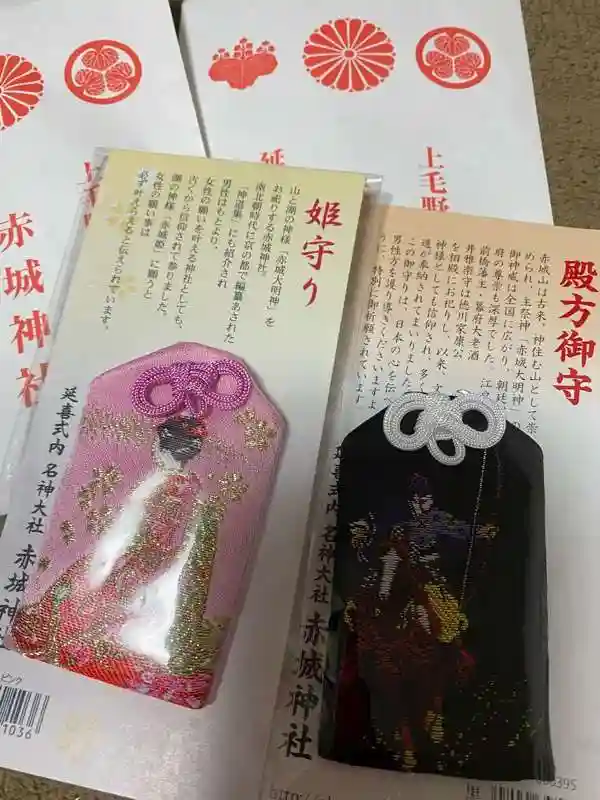 上毛野
赤城神社
延
上毛野
姫守り
山と湖の神様「赤城大明神」を
お祀りする赤城神社。
南北朝時代に京の都で編纂あされた
「神道集」にも紹介され
男性はもとより、
女性の願いを叶える神社としても、
古くから信仰されて参りました。
湖の神様「赤城姫」に願うと
女性の願い事は
必ず叶えらると伝えられています。
延喜式内 名神大社 赤城神
ピンク
1036
殿方御守
赤城山は古来、神住む山として崇
められ、主祭神「赤城大明神」の
御神威は全国に広がり、朝廷
府の尊崇も深厚でした。江
前橋藩主・幕府大老酒
井雅楽守は徳川家康公
を相殿にお祀りし、以来、文
神様としても信仰され、多く
達が奉納されてまいりました
この御守りは、日本の心を伝
男性方を護り導くくださいますよ
うに、特別に御祈願されています
延喜式内 名神大社 赤城神社